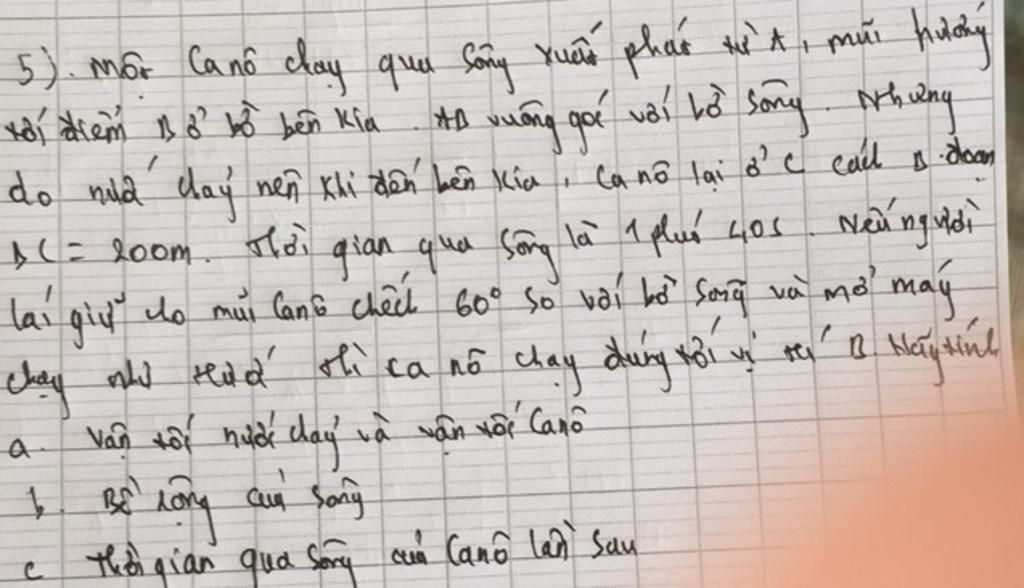 5). Một Canô chạy qua sông xuất phát từ A, mũi hướng
tới điểm B ở bờ bên kia. AB vuông góc với bờ sông. Nhưng
do nước chảy nên khi đến bên kia, Canô lại ở C cách B đoạn
BC = 200m. Thời gian qua sông là 1 phút 40s. Nếu người
lái giữ cho mũi Canô chếch 60° so với bờ sông và mở máy
chạy như trước thì ca nô chạy đúng tới vị trí B. Hãy tính
a. Vận tốc nước chảy và vận tốc Canô
b. Bề rộng của sông
c thời gian qua sông của Canô lần sau